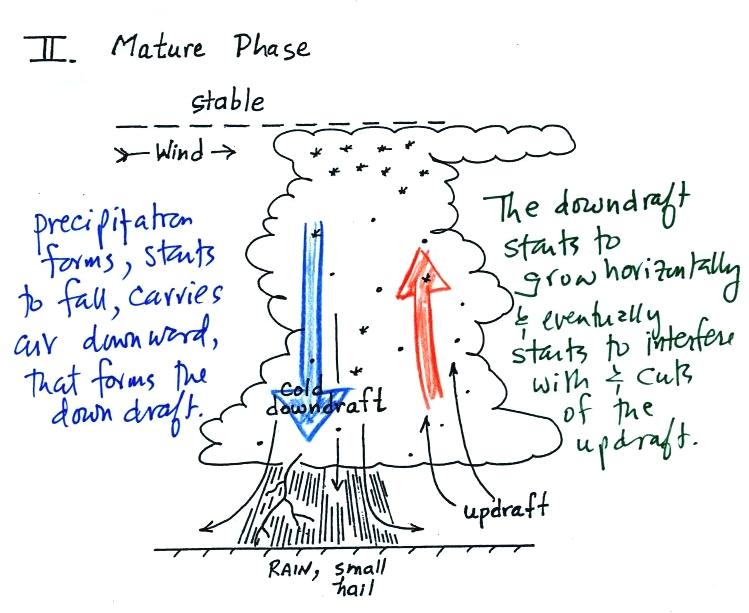 II. Mature Phase
stable
Wind
precipitation
forms, starts
to fall, carries
air downward,
that forms the
down draft.
The downdraft
starts to
grow horizontally
& eventually
starts to interfere
with & cuts
of the
updraft.
Cold
downdraft
updraft
RAIN, small
hail